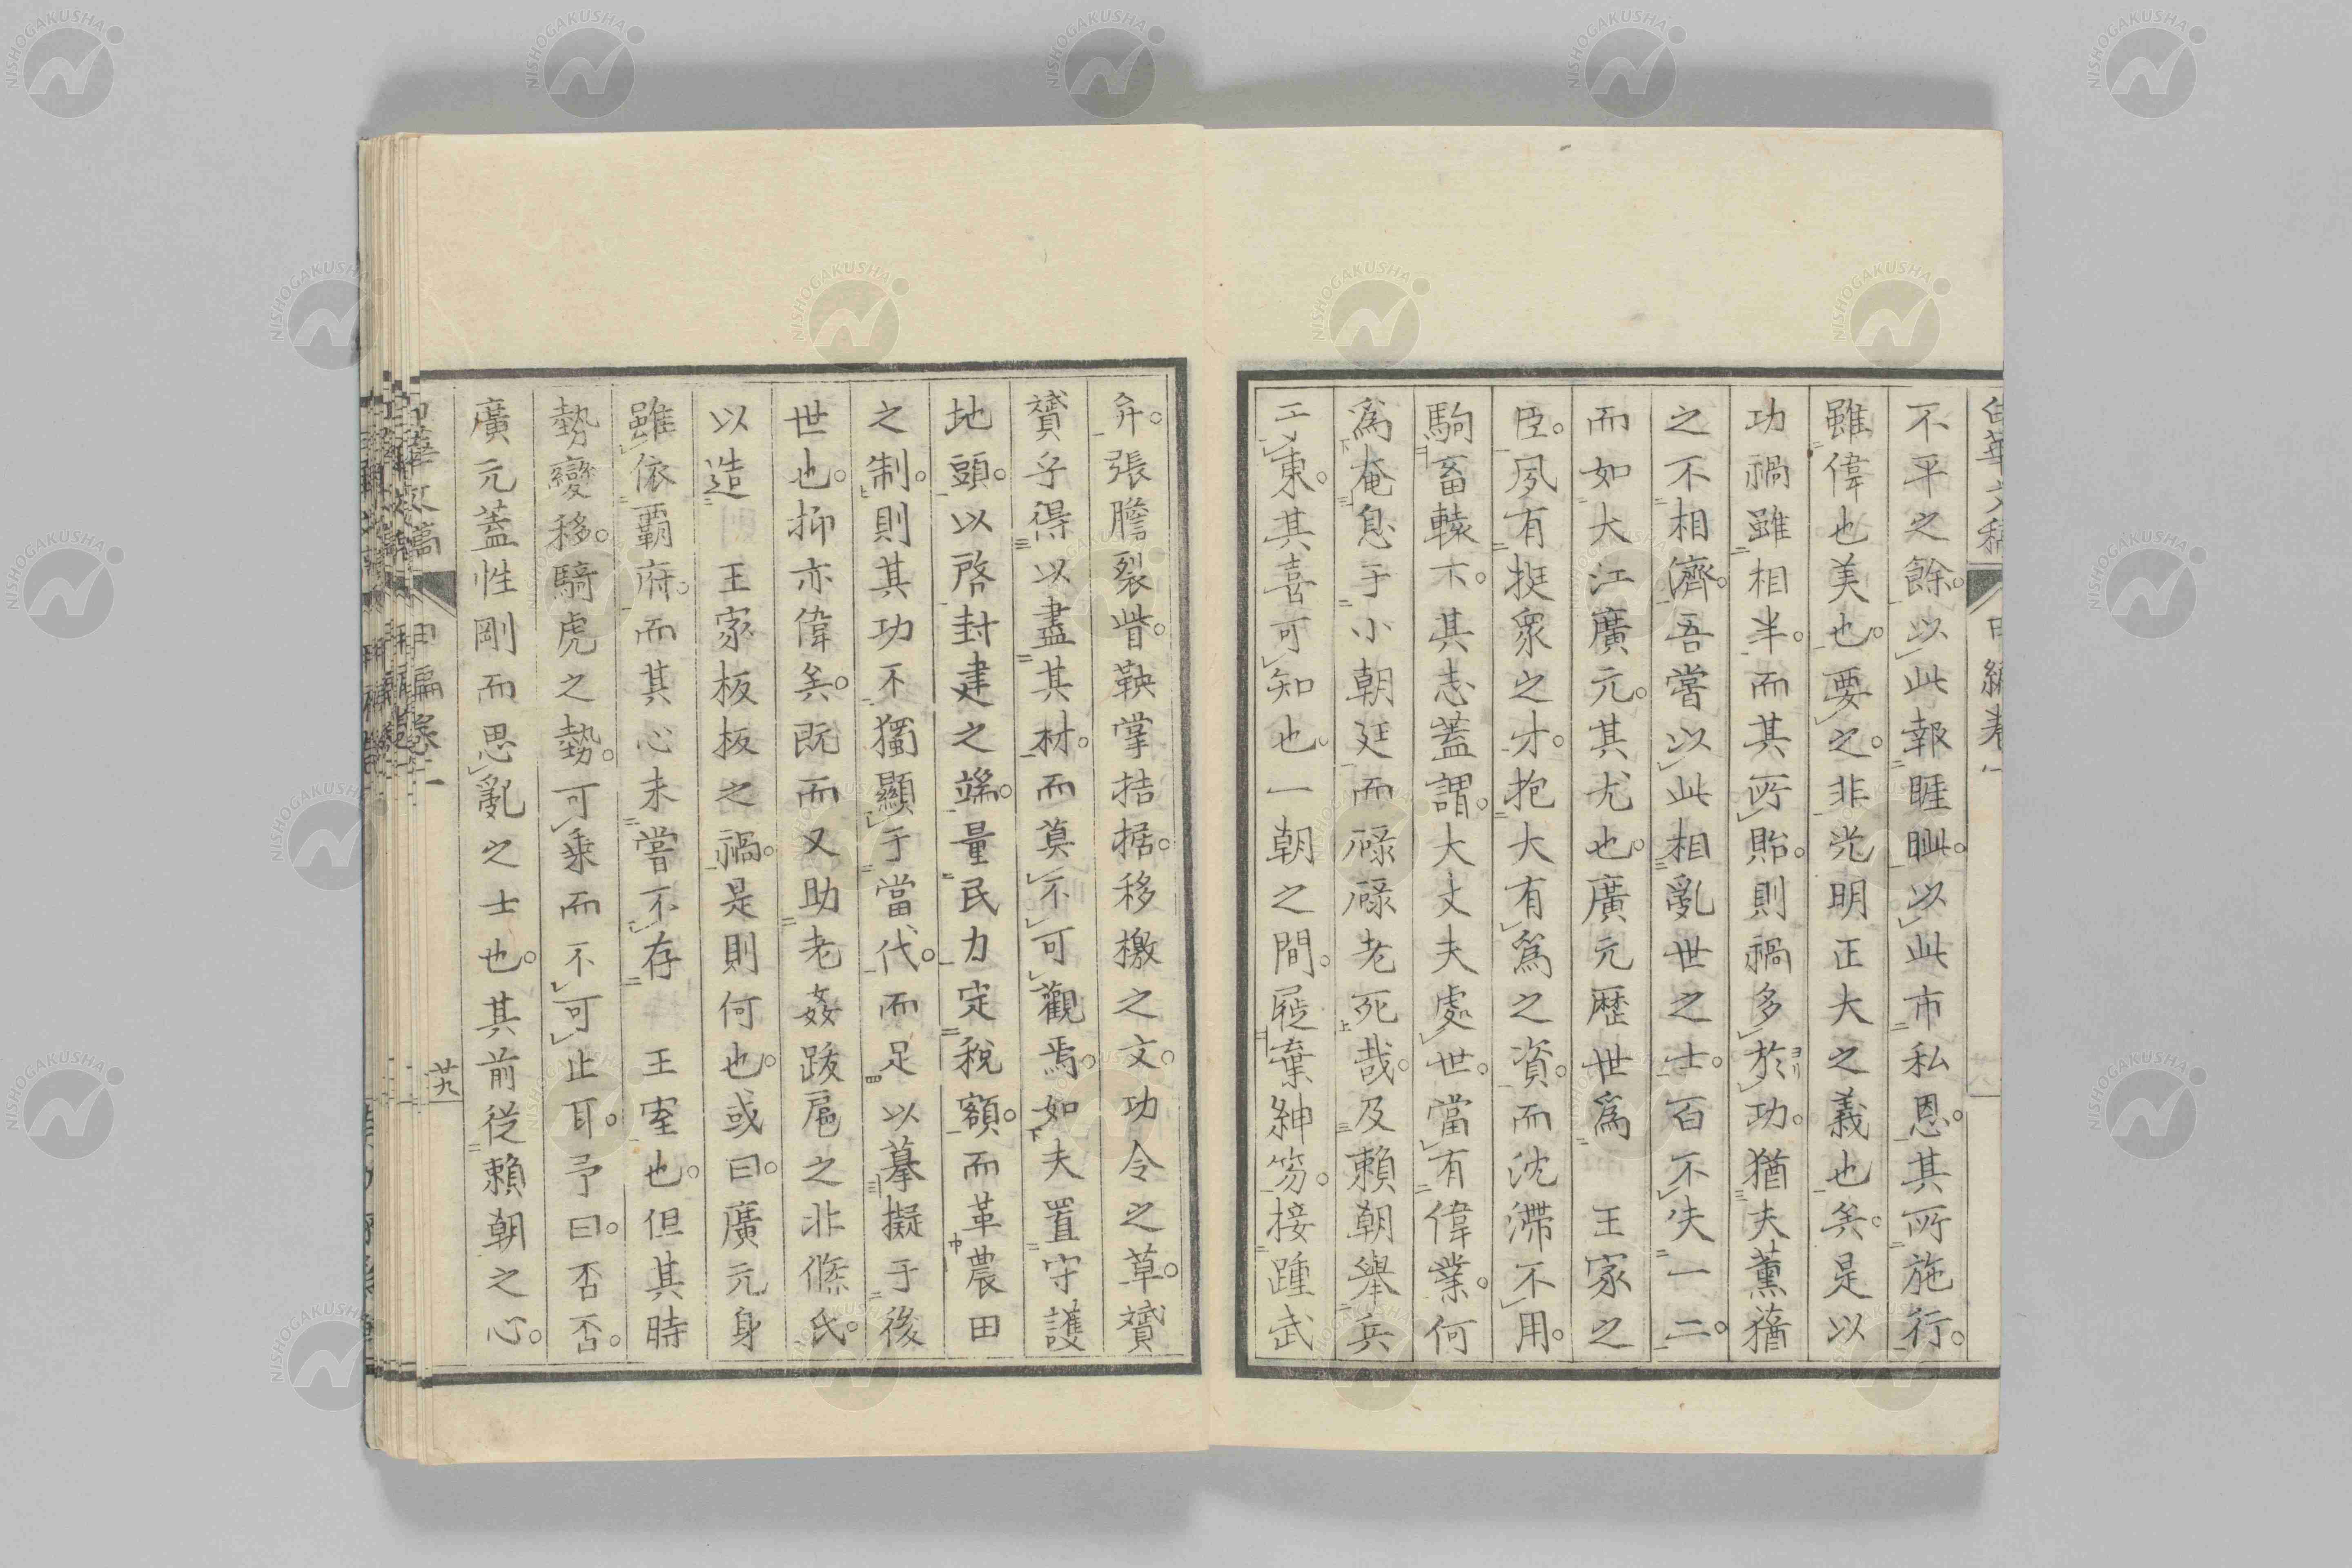 不平之餘。以此報睚眦。以此市私恩。其所施行。
雖偉也美也。要之。非光明正大之義也矣。是以
功禍雖相半。而其所貽。則禍多於功。猶夫薰蕕
之不相濟。吾嘗以此相亂世之士。百不失一二。
而如大江廣元。其尤也。廣元歷世爲 王家之
臣。夙有挺衆之才。抱大有爲之資。而沈滯不用。
駒畜轅下。其志蓋謂。大丈夫處世。當有偉業。何
爲奄息于小朝廷而碌碌老死哉。及賴朝舉兵
于東。其喜可知也。一朝之間。屣棄紳笏。接踵武
弁。張膽裂眥。鞅掌拮据。移檄之文。功令之草。贇
贇乎得以盡其材。而莫不可觀焉。如夫置守護
地頭。以啓封建之端。量民力定稅額。而革農田
之制。則其功不獨顯于當代。而足以摹擬于後
世也。抑亦偉矣。既而又助老姦跋扈之非條氏。
以造 王家板板之禍。是則何也。或曰。廣元身
雖依覇府。而其心未嘗不存 王室也。但其時
勢變移。騎虎之勢。可乘而不可止耳。予曰。否否。
廣元蓋性剛而思亂之士也。其前從賴朝之心。
廿九